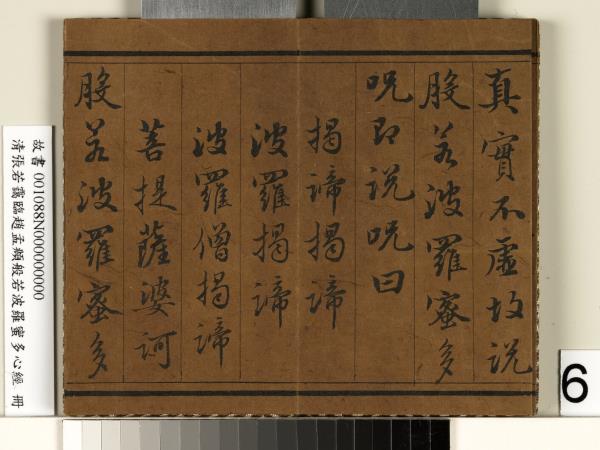 真實不虛故說
般若波羅蜜多
咒即說咒曰
揭諦揭諦
波羅揭諦
波羅僧揭諦
菩提薩婆訶
般若波羅蜜多
故書 001088N000000000
清張若靄臨趙孟頫般若波羅蜜多心經 冊
6